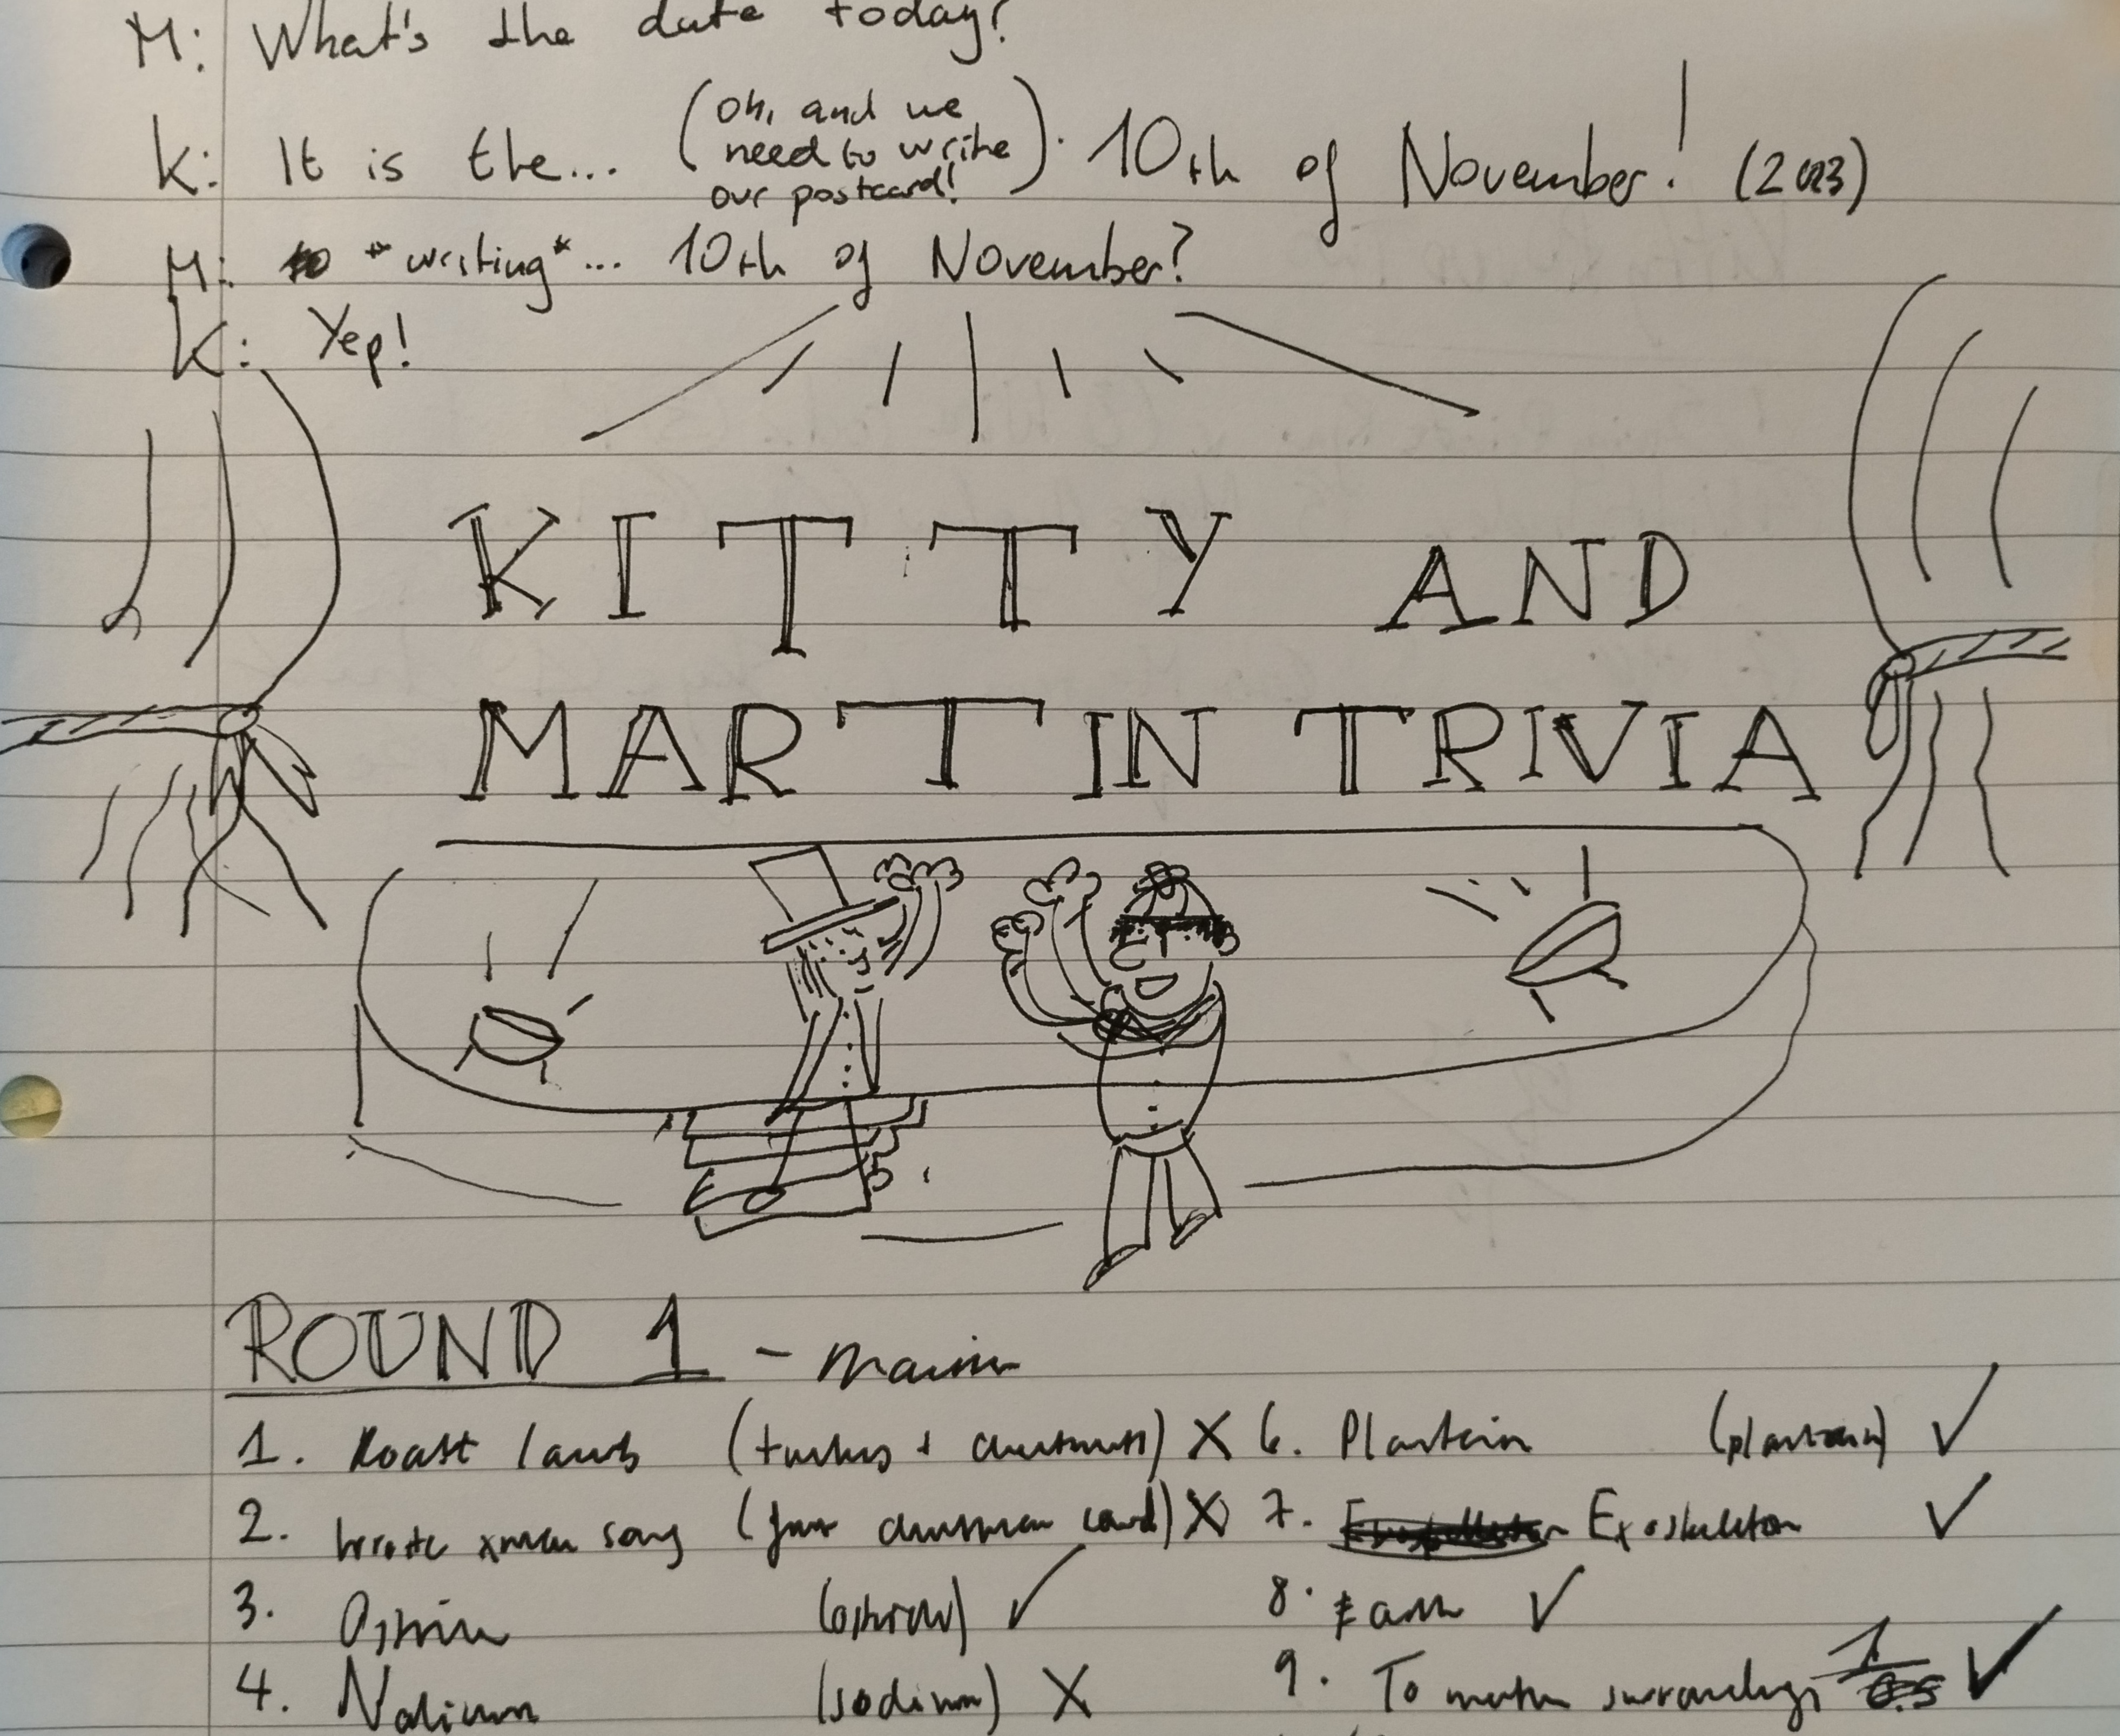 M: What's the date today?
K: It is the... (oh, and we need to write our postcard!). 10th of November! (2023)
M: *writing*... 10th of November?
K: Yep!
KITTY AND
MARTIN TRIVIA
ROUND 1 -
1. Roast lamb (turkey + chestnuts) X
2. xmas song X
3. (ostrich) ✓
4. Natrium (sodium) X
6. Plantain (plantain) ✓
7. Exoskeleton ✓
8. ✓
9. To match surroundings 1 0.5 ✓